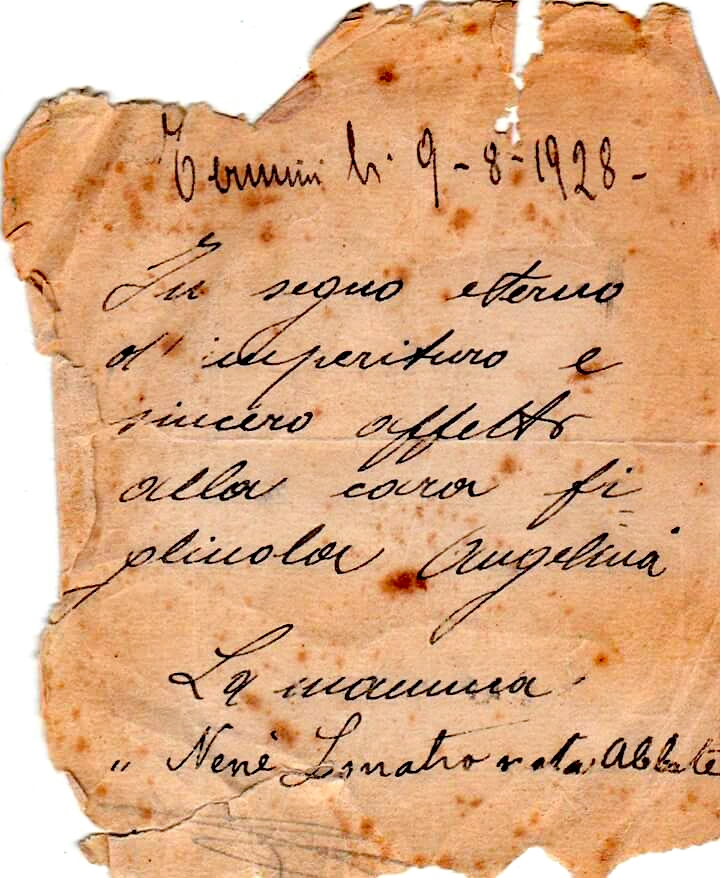 Termini li 9-8-1928-
In segno eterno
d'imperituro e
sincero affetto
alla cara fi
gliuola Angelina
La mamma
" Nené nata Abbate